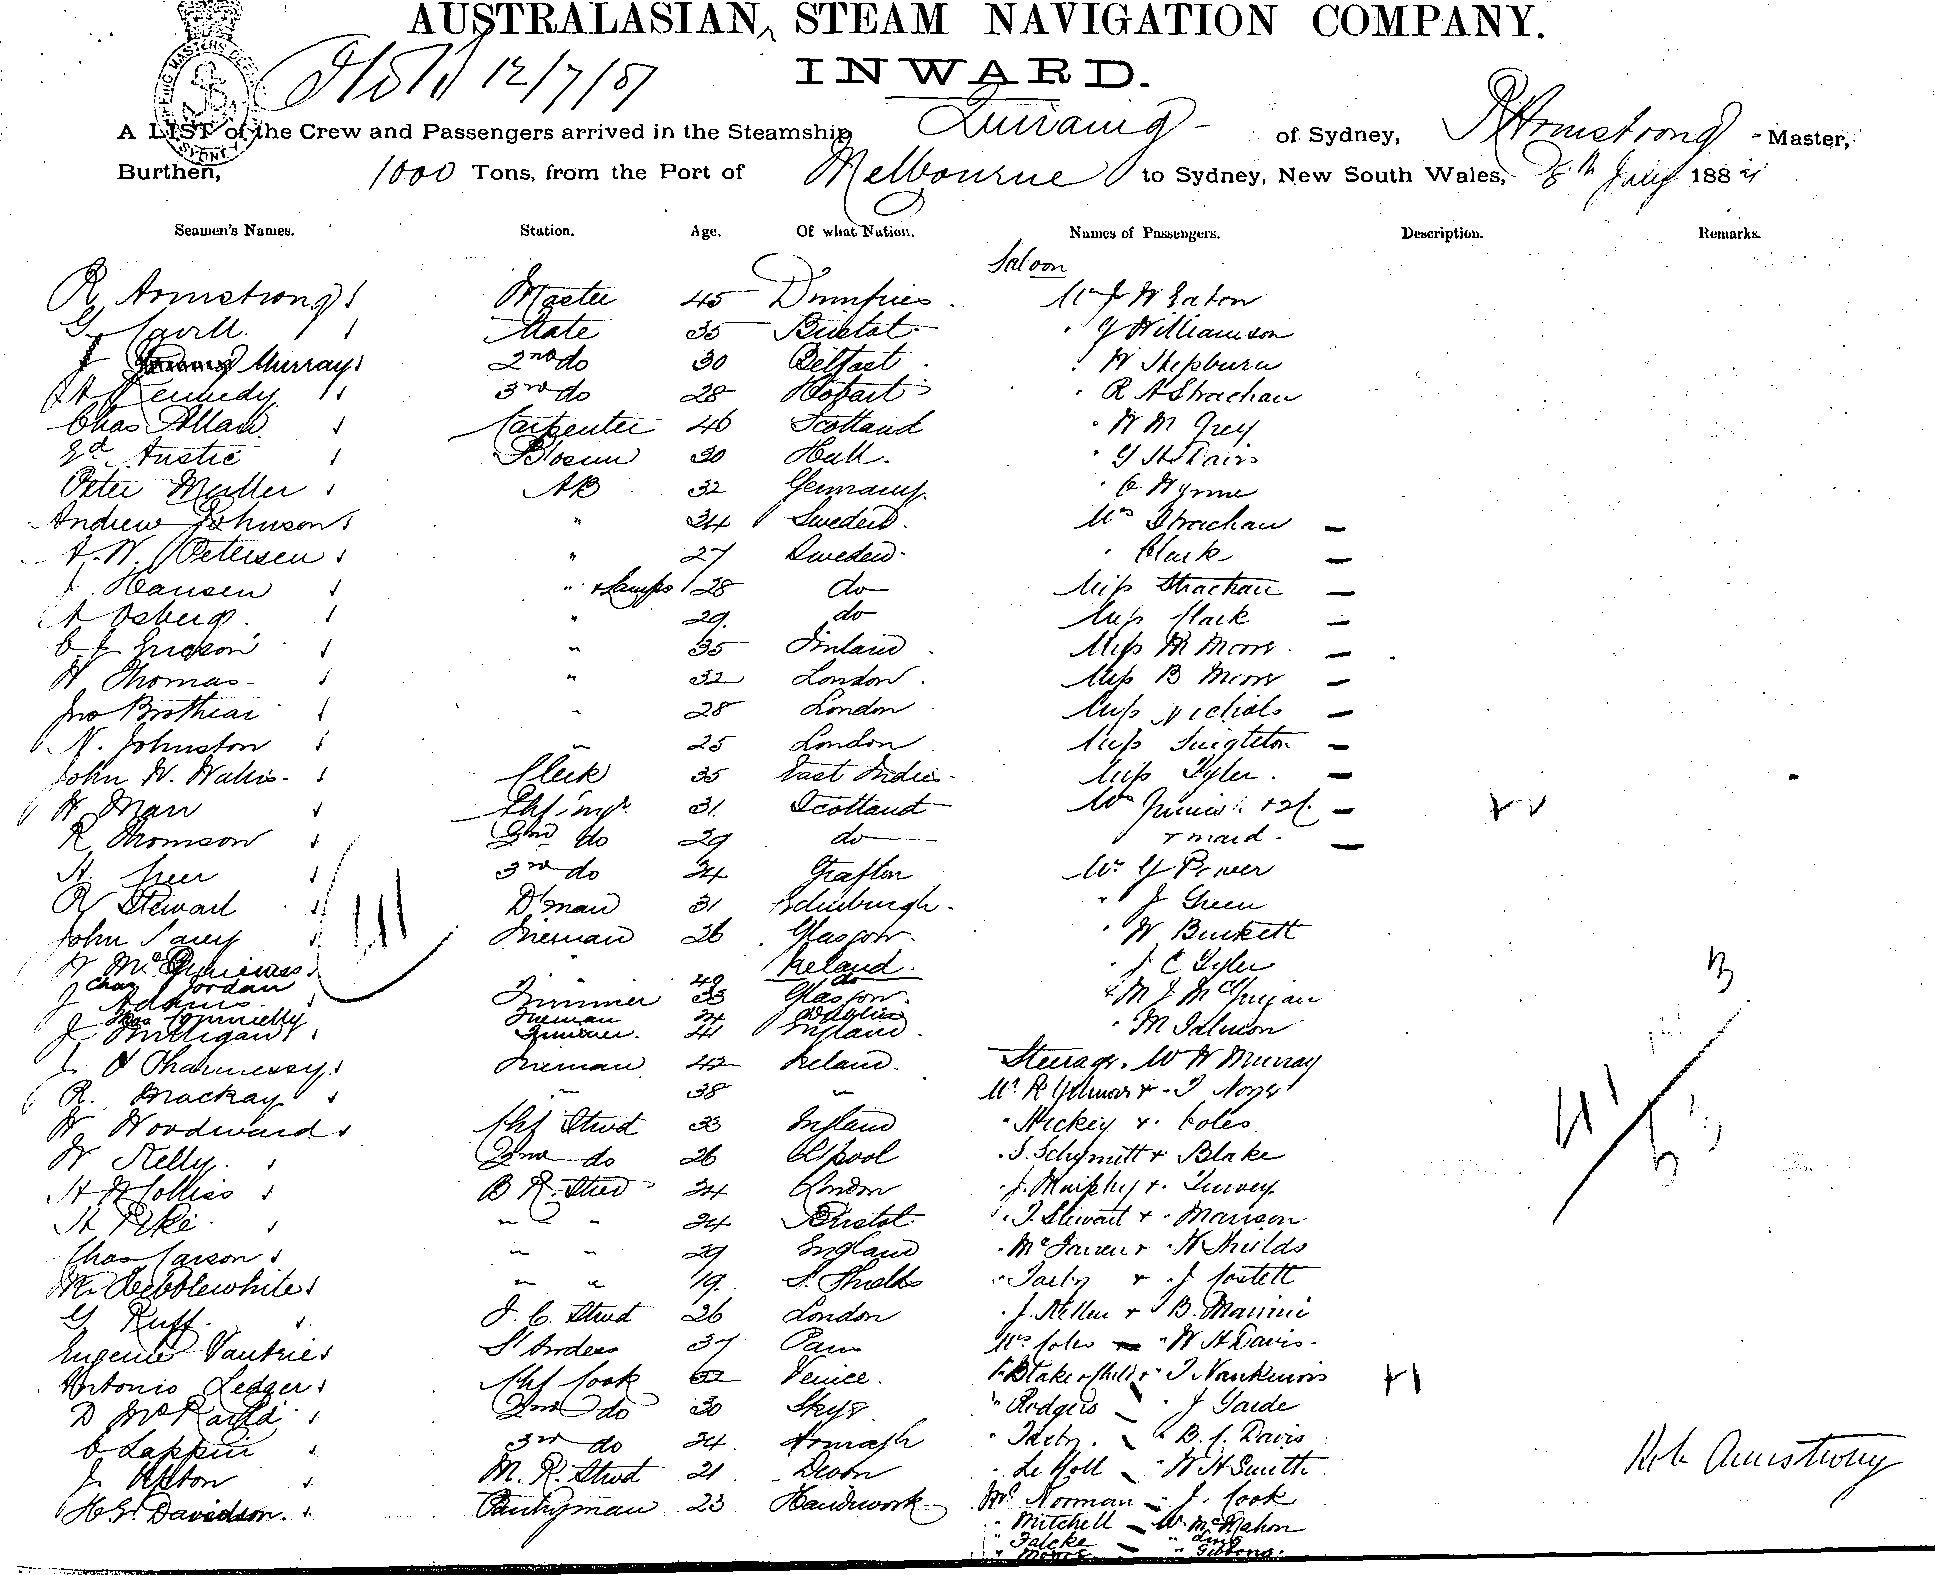 AUSTRALASIAN STEAM NAVIGATION COMPANY.
INWARD.
12/7/87
A LIST of the Crew and Passengers arrived in the Steamship Quiraing of Sydney, R Armstrong Master,
Burthen, 1000 Tons, from the Port of Melbourne to Sydney, New South Wales, 8th July 188
Seamen's Names. Station. Age. Of what Nation. Names of Passengers. Description. Remarks.
Saloon
R Armstrong Master 45 Dumfries Mr J W Eaton
G Cavill Mate 35 Bristol " G Williamson
J Murray 2nd do 30 Belfast " W Hepburn
A Kennedy 3rd do 28 Hobart " R A Strachan
Chas Allan Carpenter 46 Scotland " W M Grey
Ed. Austie Bosun 30 Hull. " G H Fairs
Peter Muller AB 32 Germany " C Wynne
Andrew Johnson " 34 Sweden Mrs Strachan
A. W. Petersen " 27 Sweden " Clark
J Hansen " + Lamps 28 do Miss Strachan
A Osberg " 29 do Miss Clark
C. J. Ericson " 35 Finland Miss M Moore
H Thomas " 32 London Miss B Moore
Jno Brothear " 28 London Miss Nichols
N. Johnston " 25 London Miss Singleton
John W. Wallis Clerk 35 East Indies Miss Tyler
W Marr Chf Engr 31 Scotland Mrs
R Thomson 2nd do 29 do + maid
A. Greer 3rd do 34 Grafton Mr G Power
R Stewart D'man 31 Edinburgh " J Green
John Davey Fireman 26 Glasgow " W Birkett
W McGuiness " Ireland " J C Tyler
Chas Jordan 49 do
J Adams Trimmer 33 Glasgow " M J McGrigan
Connelly Fireman 34 Dublin
J Milligan Trimmer 41 England " M Salmon
J O'Shannessy Fireman 42 Ireland Steerage. W H Murray
R. Mackay " 38 " Mr R Gilmour + T Noyes
W Woodward Chf Stwd 33 England " Hickey + Coles
W Kelly 2nd do 26 L'pool " S. Schymitt + Blake
A W Colliss B R. Stwd 34 London " J. Murphy + Turvey
A Pike " " 34 Bristol " T. Stewart + Manson
Chas Carson " " 29 England " McFarren + W Shields
M. Hebblewhite " " 19 S. Shields " + J Costell
G Ruff F. C. Stwd 26 London " J. Kellen + B. Marini
Eugenie Vautrie St'ardess 37 Paris Mrs Coles " W H Davis
Antonio Ledger Chf Cook 62 Venice " Blake + child + T Nankervis
D McRaild 2nd do 30 Skye " Rodgers " J Garde
C Lappin 3rd do 34 Armagh " B. C. Davis
J. Upton M. R. Stwd 21 Devon " Le Noll " W H Smith
H. G. Davidson Pantryman 23 Handwork Mrs Norman J. Cook
" Mitchell W. McMahon
" Falcke
" Gibbons
Robt Armstrong